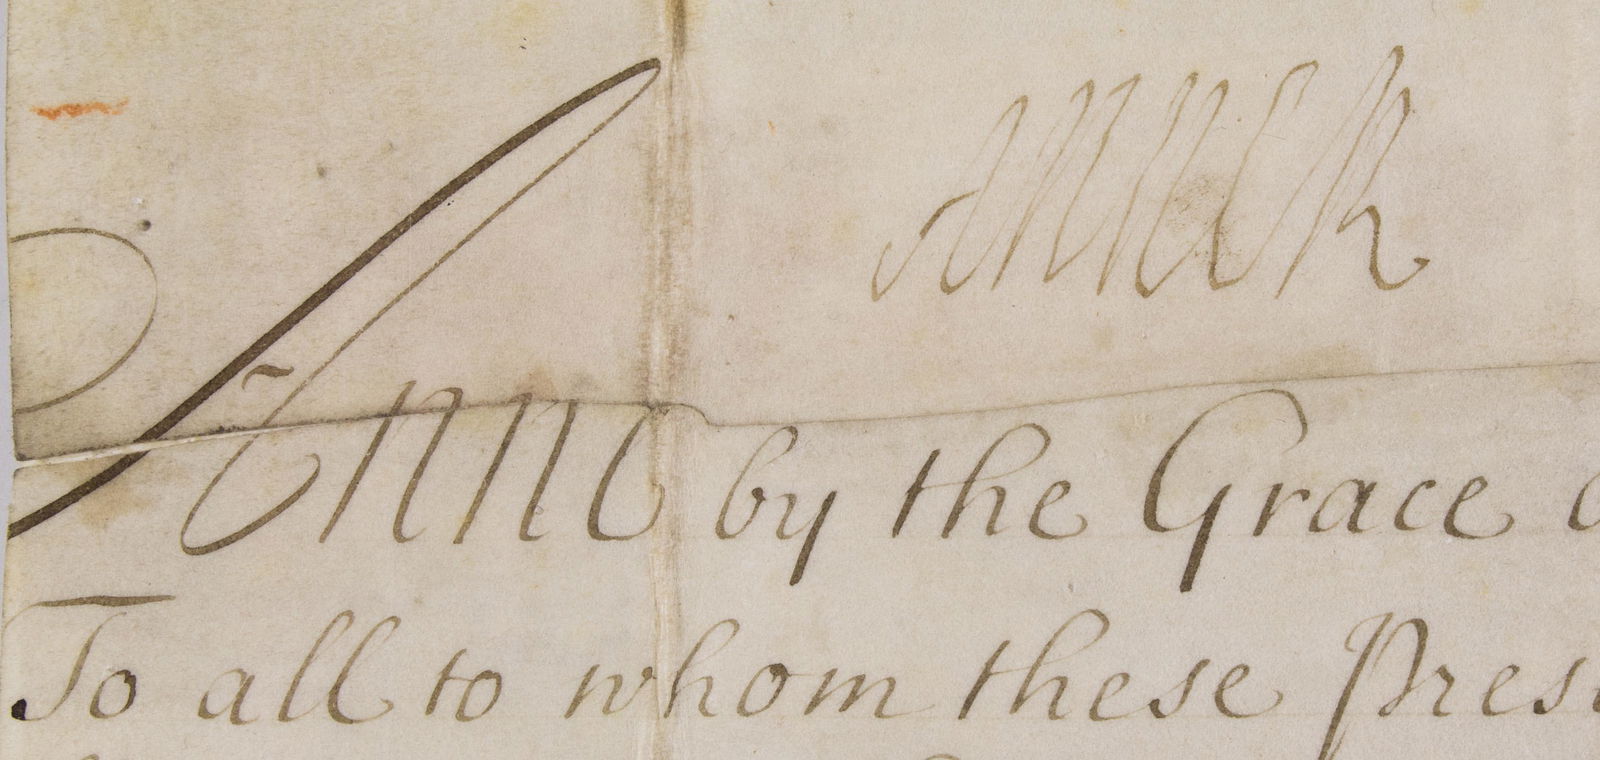 Anne R
Anne by the Grace
To all to whom these